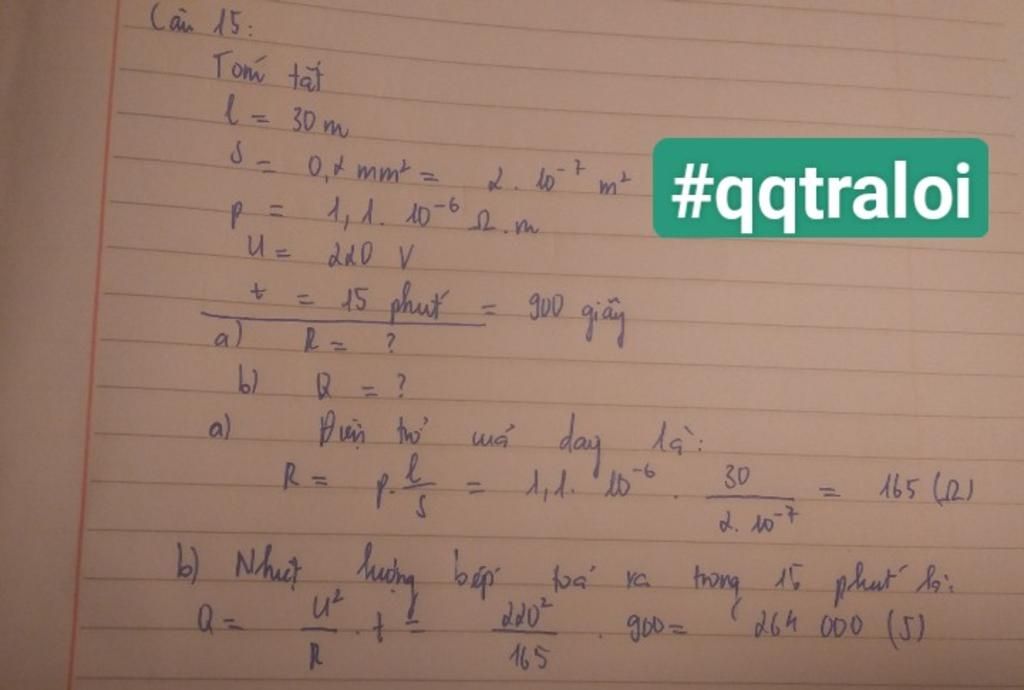 Câu 15:
Tóm tắt
l = 30 m
S = 0,2 mm² = 2. 10⁻⁷ m²
#qqtraloi
p = 1,1. 10⁻⁶ Ω.m
U = 220 V
t = 15 phút = 900 giây
a) R = ?
b) Q = ?
a) Điện trở mà day là:
R = p. l/S = 1,1. 10⁻⁶ . 30/2. 10⁻⁷ = 165 (Ω)
b) Nhiệt lượng bếp toả ra trong 15 phút là:
Q = U²/R . t = 220²/165 . 900 = 264 000 (J)